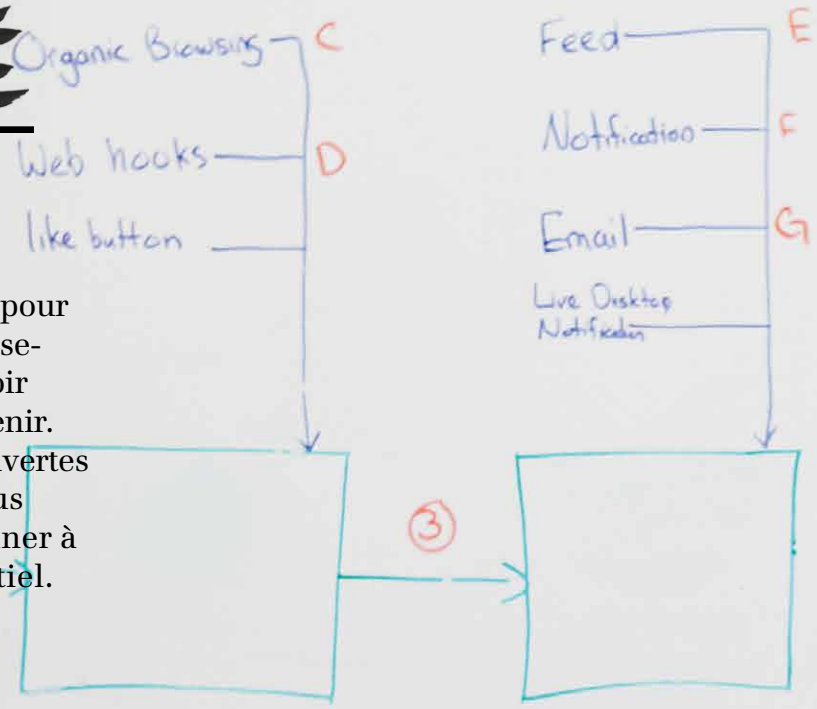 Organic Browsing C
Web hooks D
like button
Feed E
Notification F
Email G
Live Desktop
Notification
pour
se-
oir
enir.
vertes
us
ner à
tiel.
3